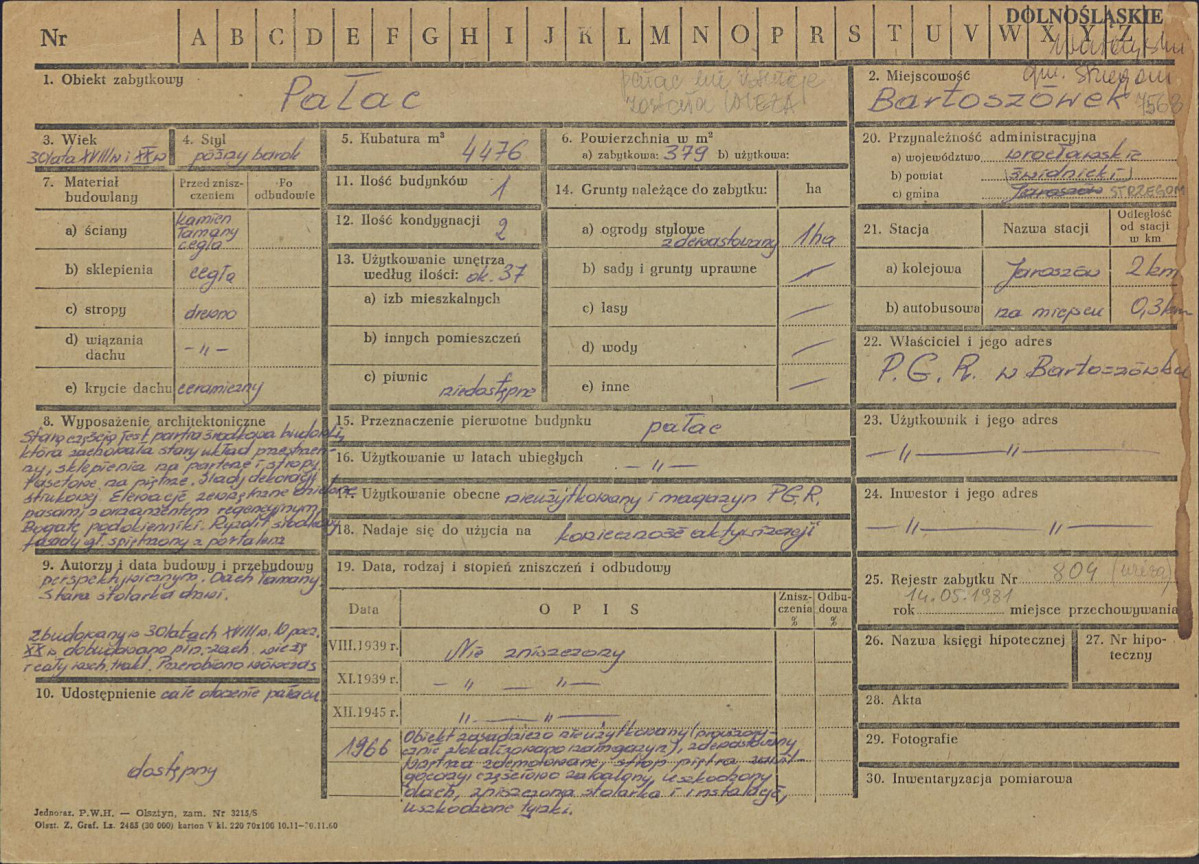 Nr A B C D E F G H I J K L M N O P R S T U V W X Y Z
DOLNOŚLĄSKIE
gm. Strzegom
1. Obiekt zabytkowy
Pałac
pałac nie istnieje
została WIEŻA
2. Miejscowość
Bartoszówek
7568
3. Wiek
30 lata XVIII w i XX w
4. Styl
późny barok
5. Kubatura m³
4476
6. Powierzchnia w m²
a) zabytkowa: 379 b) użytkowa:
7. Materiał budowlany
Przed zniszczeniem
Po odbudowie
a) ściany
kamień
łamany
cegła
b) sklepienia
cegła
c) stropy
drewno
d) wiązania dachu
— „ —
e) krycie dachu
ceramiczny
11. Ilość budynków
1
12. Ilość kondygnacji
2
13. Użytkowanie wnętrza
według ilości: ok. 37
a) izb mieszkalnych
b) innych pomieszczeń
c) piwnic
niedostępne
14. Grunty należące do zabytku:
ha
a) ogrody stylowe
zdewastowany
1 ha
b) sady i grunty uprawne —
c) lasy —
d) wody —
e) inne —
20. Przynależność administracyjna
a) województwo wrocławskie
b) powiat (świdnicki)
c) gmina Jaroszów STRZEGOM
21. Stacja
Nazwa stacji
Odległość od stacji w km
a) kolejowa Jaroszów 2 km
b) autobusowa na miejscu 0,3 km
22. Właściciel i jego adres
P.G.R. w Bartoszówku
8. Wyposażenie architektoniczne
Starą częścią jest partia środkowa budowli,
która zachowała stary układ przestrzen-
ny, sklepienia na parterze i stropy
fasetowe na piętrze. Ślady dekoracji
stiukowej. Elewacje zewnętrzne
pasami z ornamentem regencyjnym
Bogate podokienniki. Ryzalit środkowy
fasady gł. spiętrzony z portalem
9. Autorzy i data budowy i przebudowy
perspektywicznym. Dach łamany.
Stara stolarka drzwi.
Zbudowany w 30 latach XVIII w. 10 pocz.
XX w. dobudowano płn.-zach. wieżę
i cały wsch. trakt. Przerobiono wówczas
10. Udostępnienie całe otoczenie pałacu
dostępny
15. Przeznaczenie pierwotne budynku
pałac
16. Użytkowanie w latach ubiegłych
— „ —
17. Użytkowanie obecne
nieużytkowany i magazyn P.G.R.
18. Nadaje się do użycia na
konieczność aktywizacji
19. Data, rodzaj i stopień zniszczeń i odbudowy
Data
OPIS
Zniszczenia %
Odbudowa %
VIII.1939 r.
Nie zniszczony
XI.1939 r.
— „ — „ —
XII.1945 r.
„ — „ —
1966
Obiekt zasadniczo nieużytkowany (prowizory-
cznie zlokalizowano magazyn), zdewastowany
wnętrza zdemolowane, strop piętra
częściowo zawalony, uszkodzony
dach, zniszczona stolarka i instalacje,
uszkodzone tynki.
23. Użytkownik i jego adres
— „ — „ —
24. Inwestor i jego adres
— „ — „ —
25. Rejestr zabytku Nr 804 (wieża)
14.05.1981
rok miejsce przechowywania
26. Nazwa księgi hipotecznej
27. Nr hipoteczny
28. Akta
29. Fotografie
30. Inwentaryzacja pomiarowa
Jednoraz. P.W.H. — Olsztyn, zam. Nr 3215/S
Olszt. Z. Graf. Lz. 2485 (30 000) karton V kl. 220 70x100 10.11—30.11.60